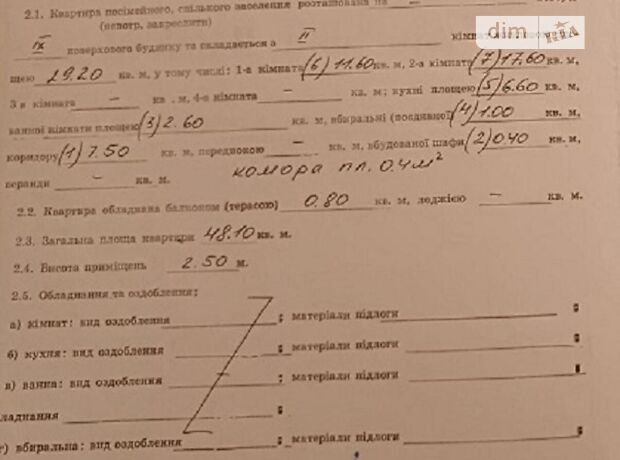 2.1. Квартира посімейного, спільного заселення розташована на
(непотр. закреслити)
dim RIA
IX поверхового будинку та складається з II
щею 29.20 кв. м, у тому числі: 1-а кімната (6) 11.60 кв. м, 2-а кімната (7) 17.60 кв. м,
3 я кімната — кв. м, 4-а кімната — кв. м; кухні площею (5) 6.60 кв. м,
ванної кімнати площею (3) 2.60 кв. м, вбиральні (поєднаної) (4) 1.00 кв. м,
коридору (1) 7.50 кв. м, передпокою — кв. м, вбудованої шафи (2) 0.40 кв. м,
веранди — кв. м. комора пл. 0.4 м²
2.2. Квартира обладнана балконом (терасою) 0.80 кв. м, лоджією — кв. м.
2.3. Загальна площа квартири 48.10 кв. м.
2.4. Висота приміщень 2.50 м.
2.5. Обладнання та оздоблення:
а) кімнат: вид оздоблення ; матеріали підлоги ;
б) кухня: вид оздоблення ; матеріали підлоги ;
в) ванна: вид оздоблення ; матеріали підлоги ;
ладнання ;
г) вбиральна: вид оздоблення ; матеріали підлоги ;